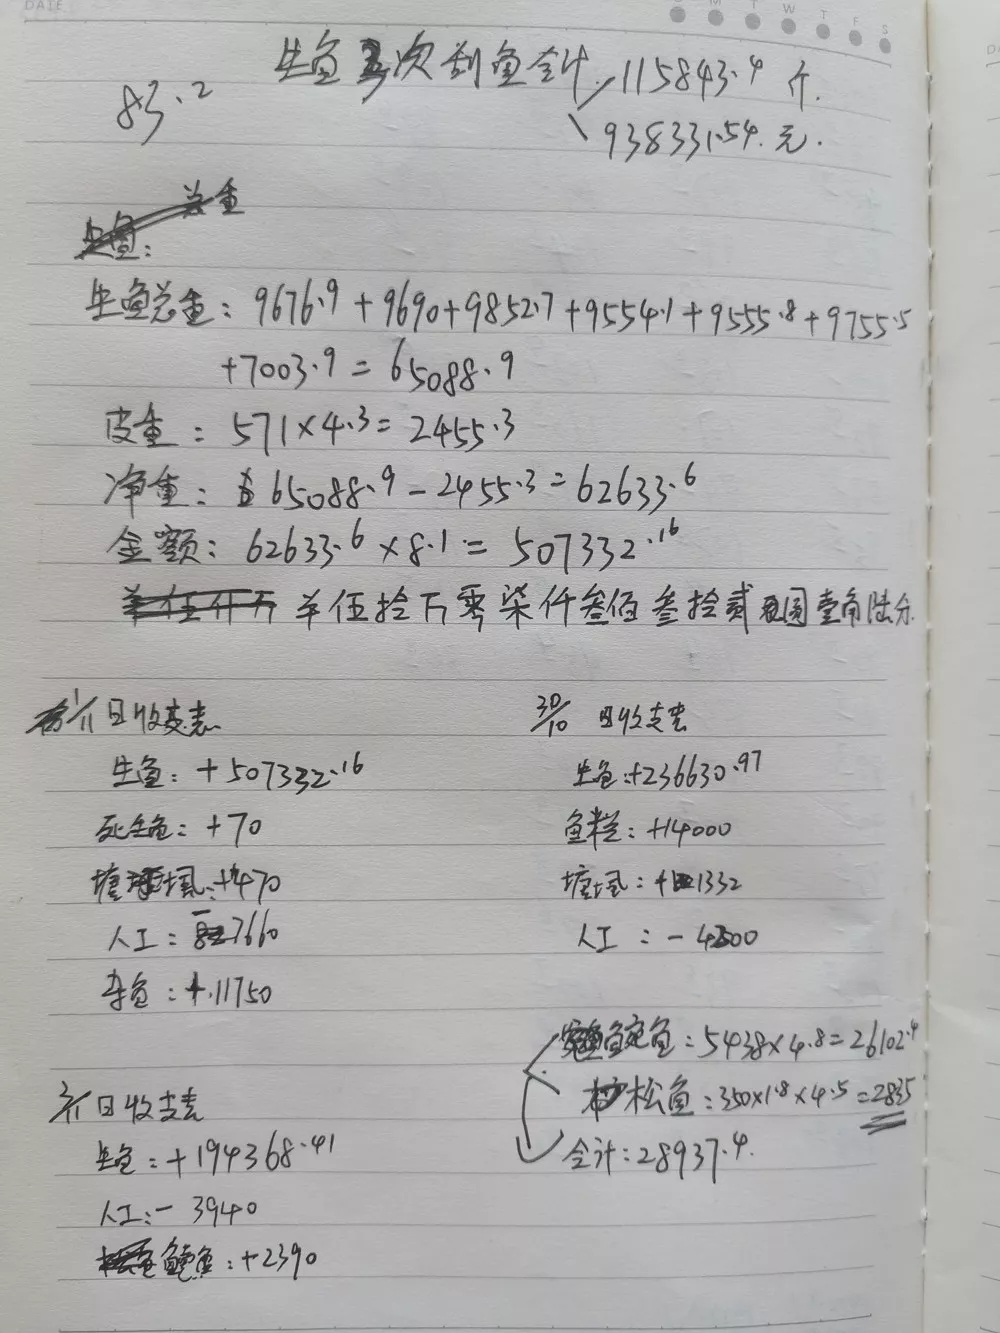 DATE
M T W T F S
生鱼3次刮鱼合计 115843.4 斤.
938331.54.元.
83.2
总重
生鱼:
生鱼总重: 9676.9+9690+9852.7+9554.1+9555.8+9755.5
+7003.9=65088.9
皮重: 571×4.3=2455.3
净重: 65088.9-2455.3=62633.6
金额: 62633.6×8.1=507332.16
伍拾万零柒仟叁佰叁拾贰圆壹角陆分.
1/11 日收支表
生鱼: +507332.16
死生鱼: +70
塘虱: +470
人工: -7660
杂鱼: +11750
30/10 日收支表
生鱼: +236630.97
鱼粒: +14000
塘虱: +1332
人工: -4300
鲩鱼: 5438×4.8=26102.4
松鱼: 350×1.8×4.5=2835
合计: 28937.4
2/11 日收支表
生鱼: +194368.41
人工: - 3940
鱼: +2390